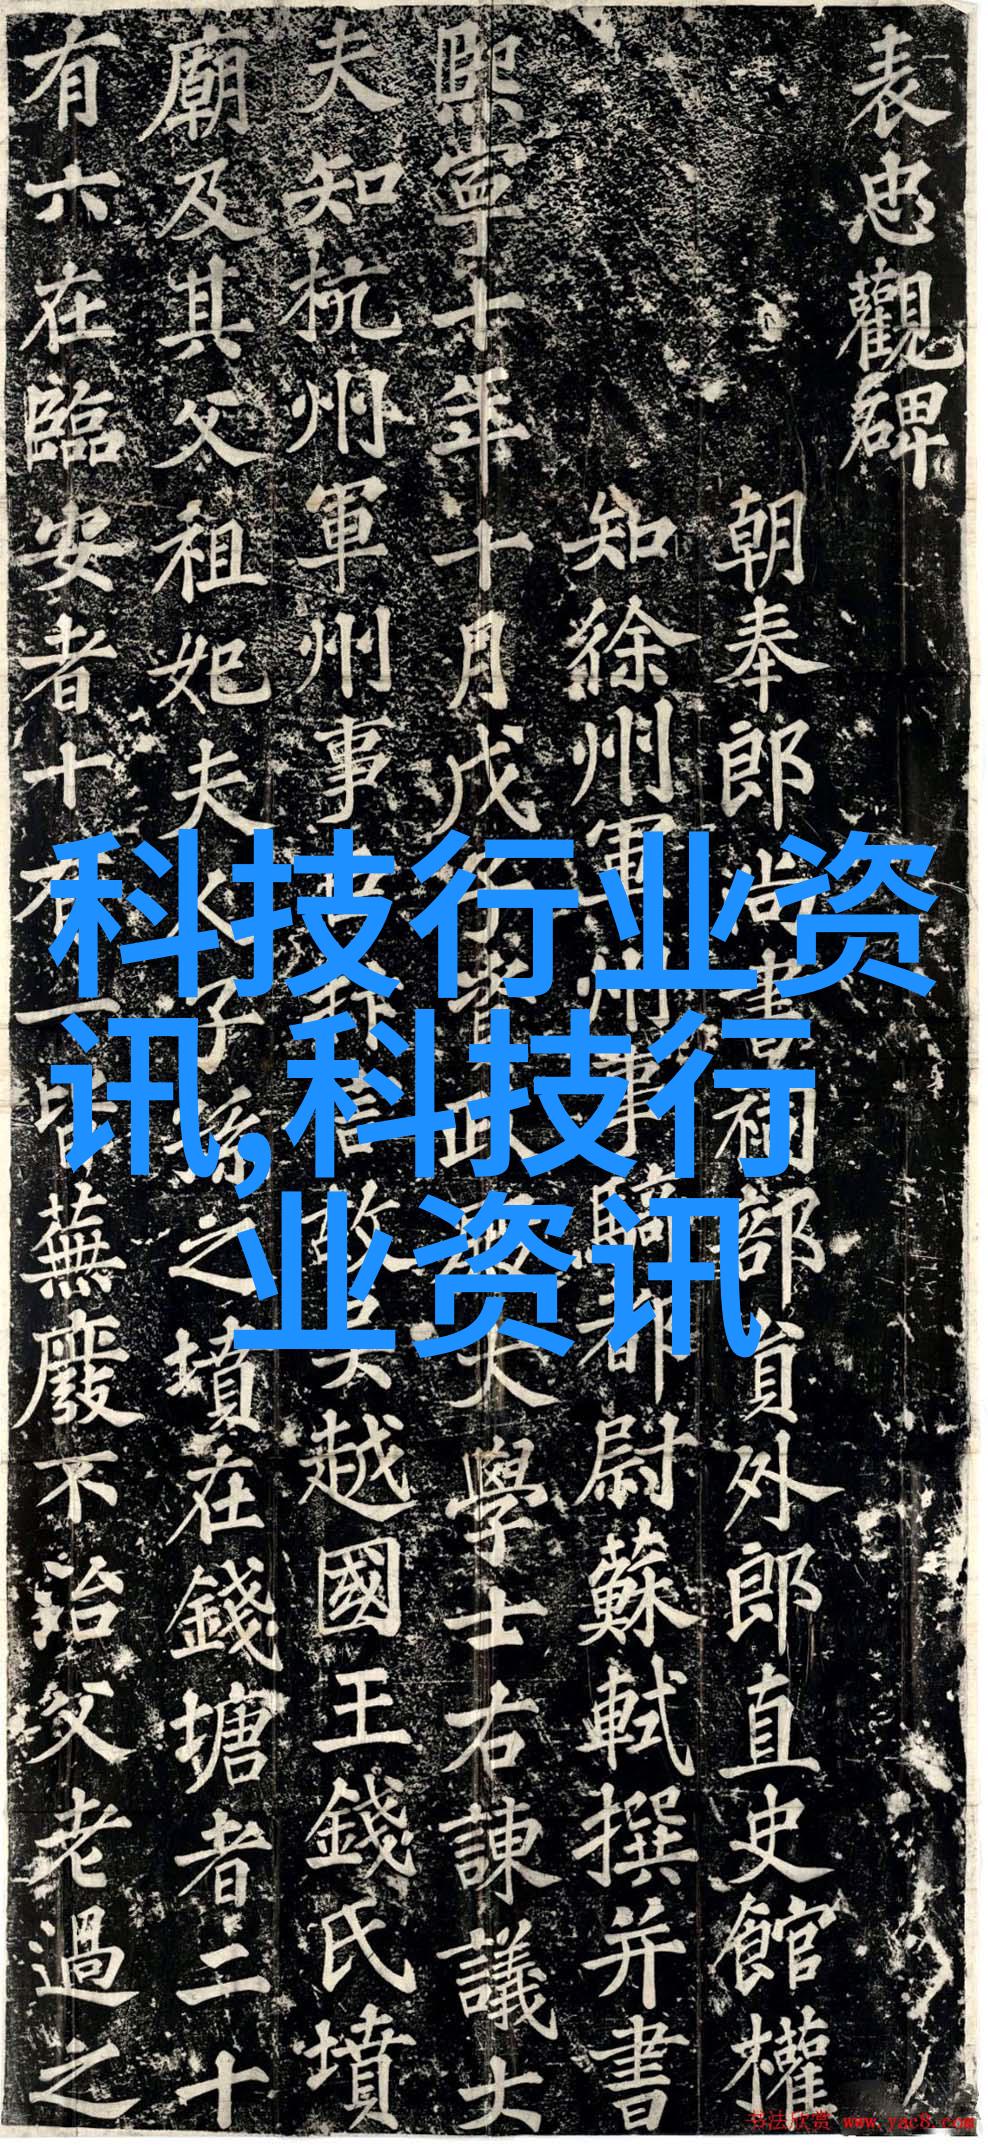 表忠觀碑
朝奉郎尚書祠部員外郎直史館權
知徐州軍州事騎都尉蘇軾撰并書
熙寧十年十月戊子資政殿大學士右諫議大
夫知杭州軍州事臣抃言故吳越國王錢氏墳
廟及其父祖妃夫人子孫之墳在錢塘者二十
有六在臨安者十有一皆蕪廢不治父老過之
科技行业资
讯,科技行
业资讯
书法欣赏 www.yac8.com